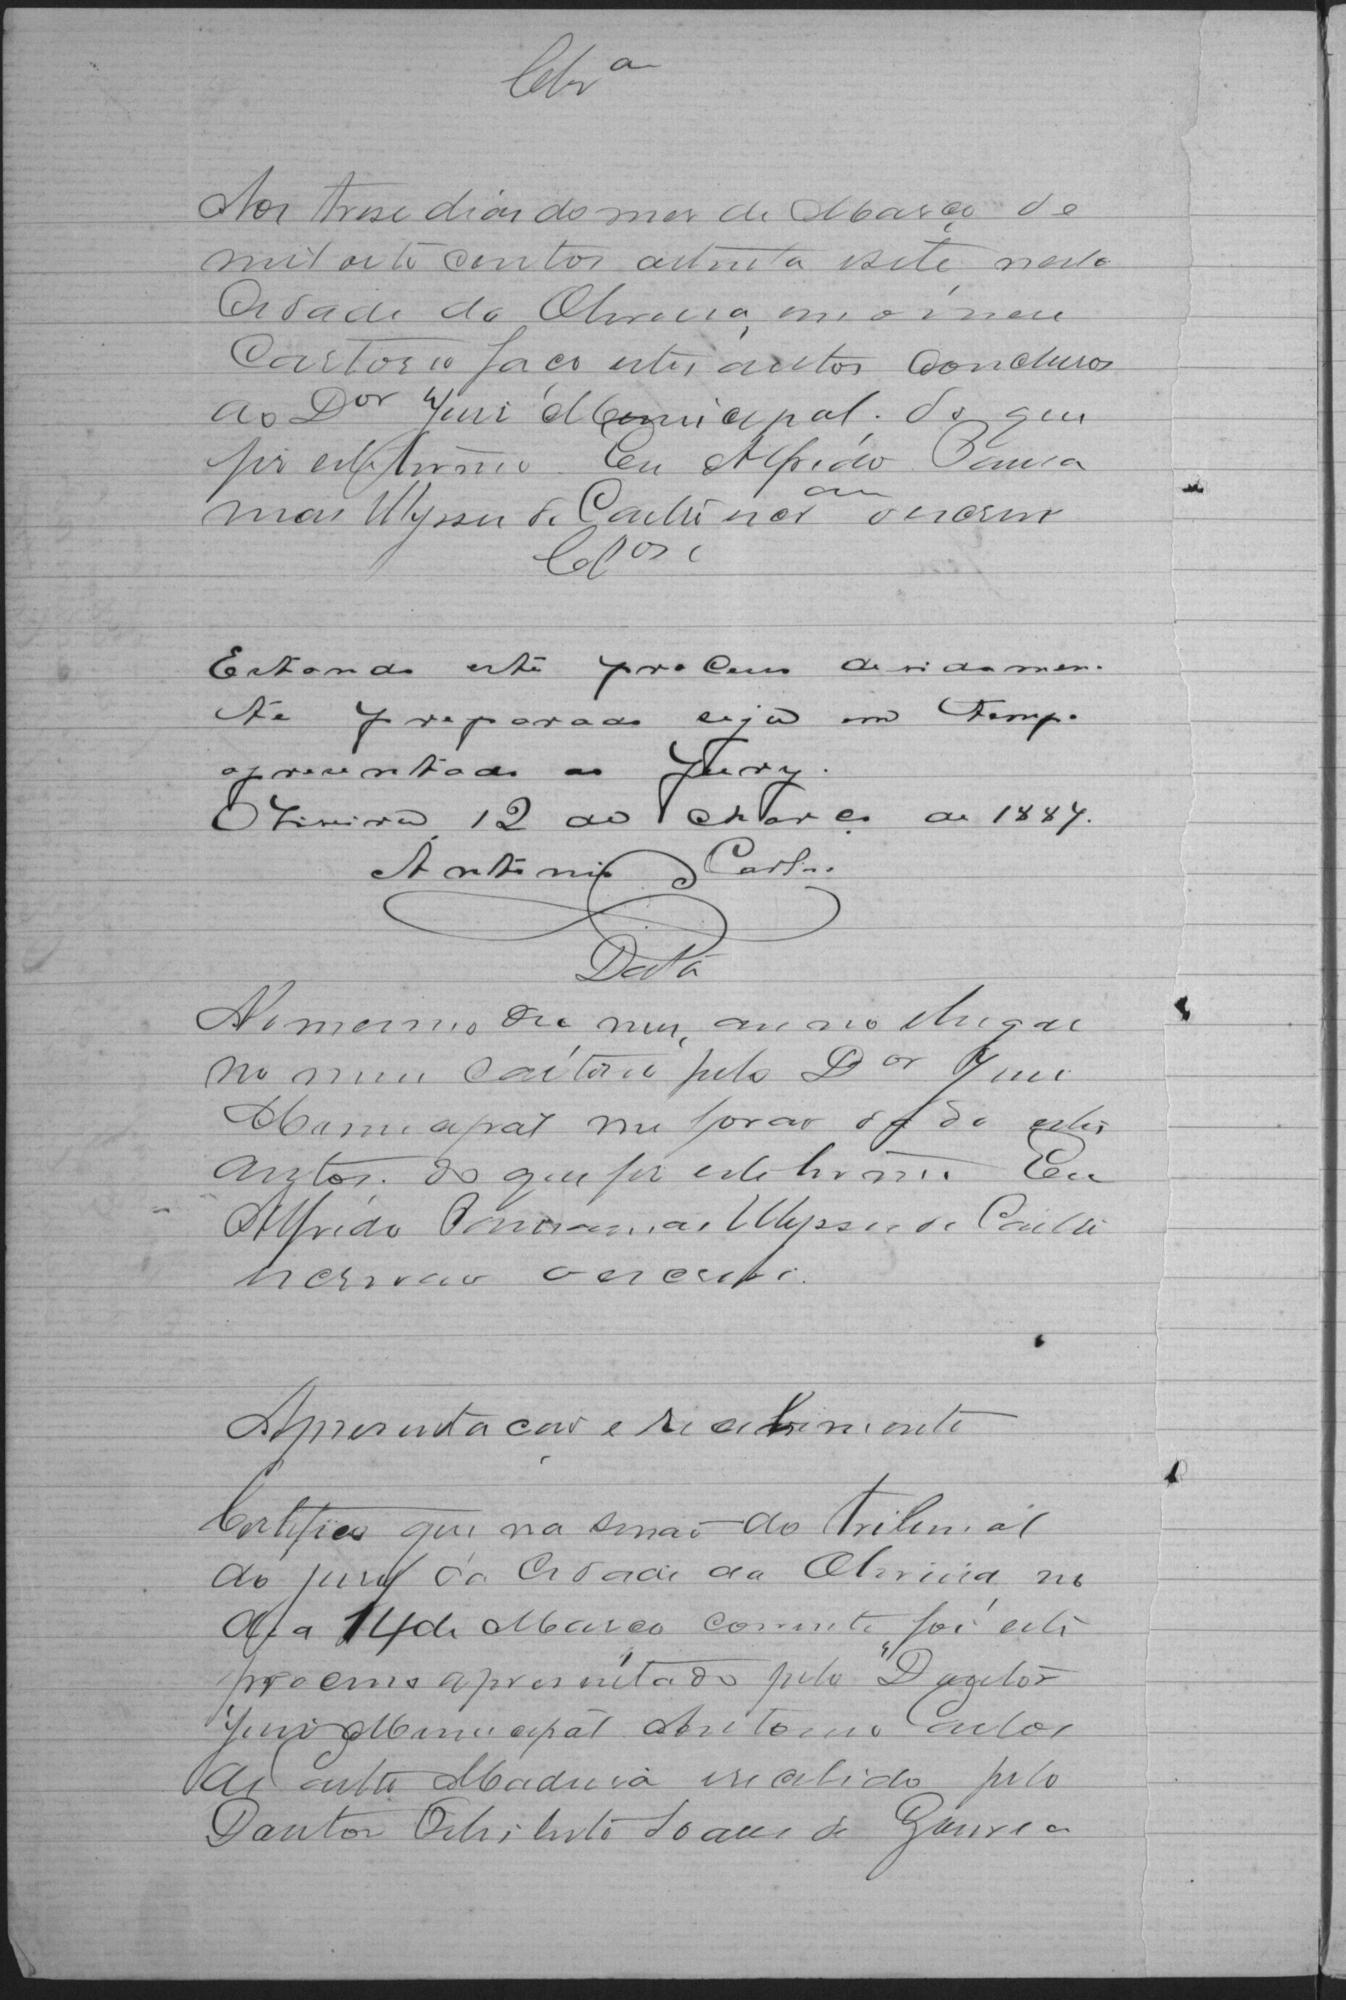 Clz.ª
Aos trese dias do mes de Março de
mil oito centos oitenta e sete nesta
Cidade da Oliveira, em o meu
Cartorio faço estes autos conclusos
ao Dor Juis Municipal. do que
fis este termo. Eu Alfredo
mas Ulysses de Castro escr.am o escrevi
Clsos
Estando este processo devidamen-
te preparado seja em tempo
apresentado ao Jury.
Oliveira 12 de Março de 1887.
Antonio Carlos
Data
No mesmo dia mes, anno lugar
no meu cartorio pelo Dor Juis
Municipal me forão dado estes
autos. do que fis este termo. Eu
Alfredo Ulysses de Castro
escrivão o escrevi.
Apresentação e recebimento
Certifico que na sessão do tribunal
do jury da Cidade da Oliveira no
dia 14 de Março corrente foi este
processo apresentado pelo Doutor
Juis Municipal Antonio Carlos
de Castro Madeira e recebido pelo
Doutor Soares de Gouvea